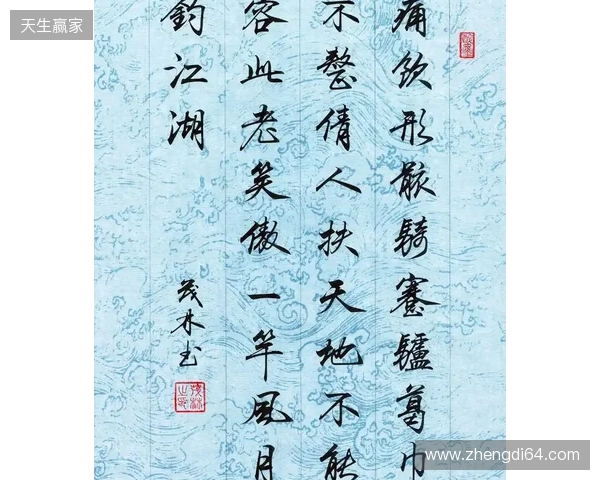 天生赢家
痛飲形骸騎蹇驢葛巾
不整倩人扶天地不能
容此老笑傲一竿風月
釣江湖
茂林书
www.zhengdi64.com